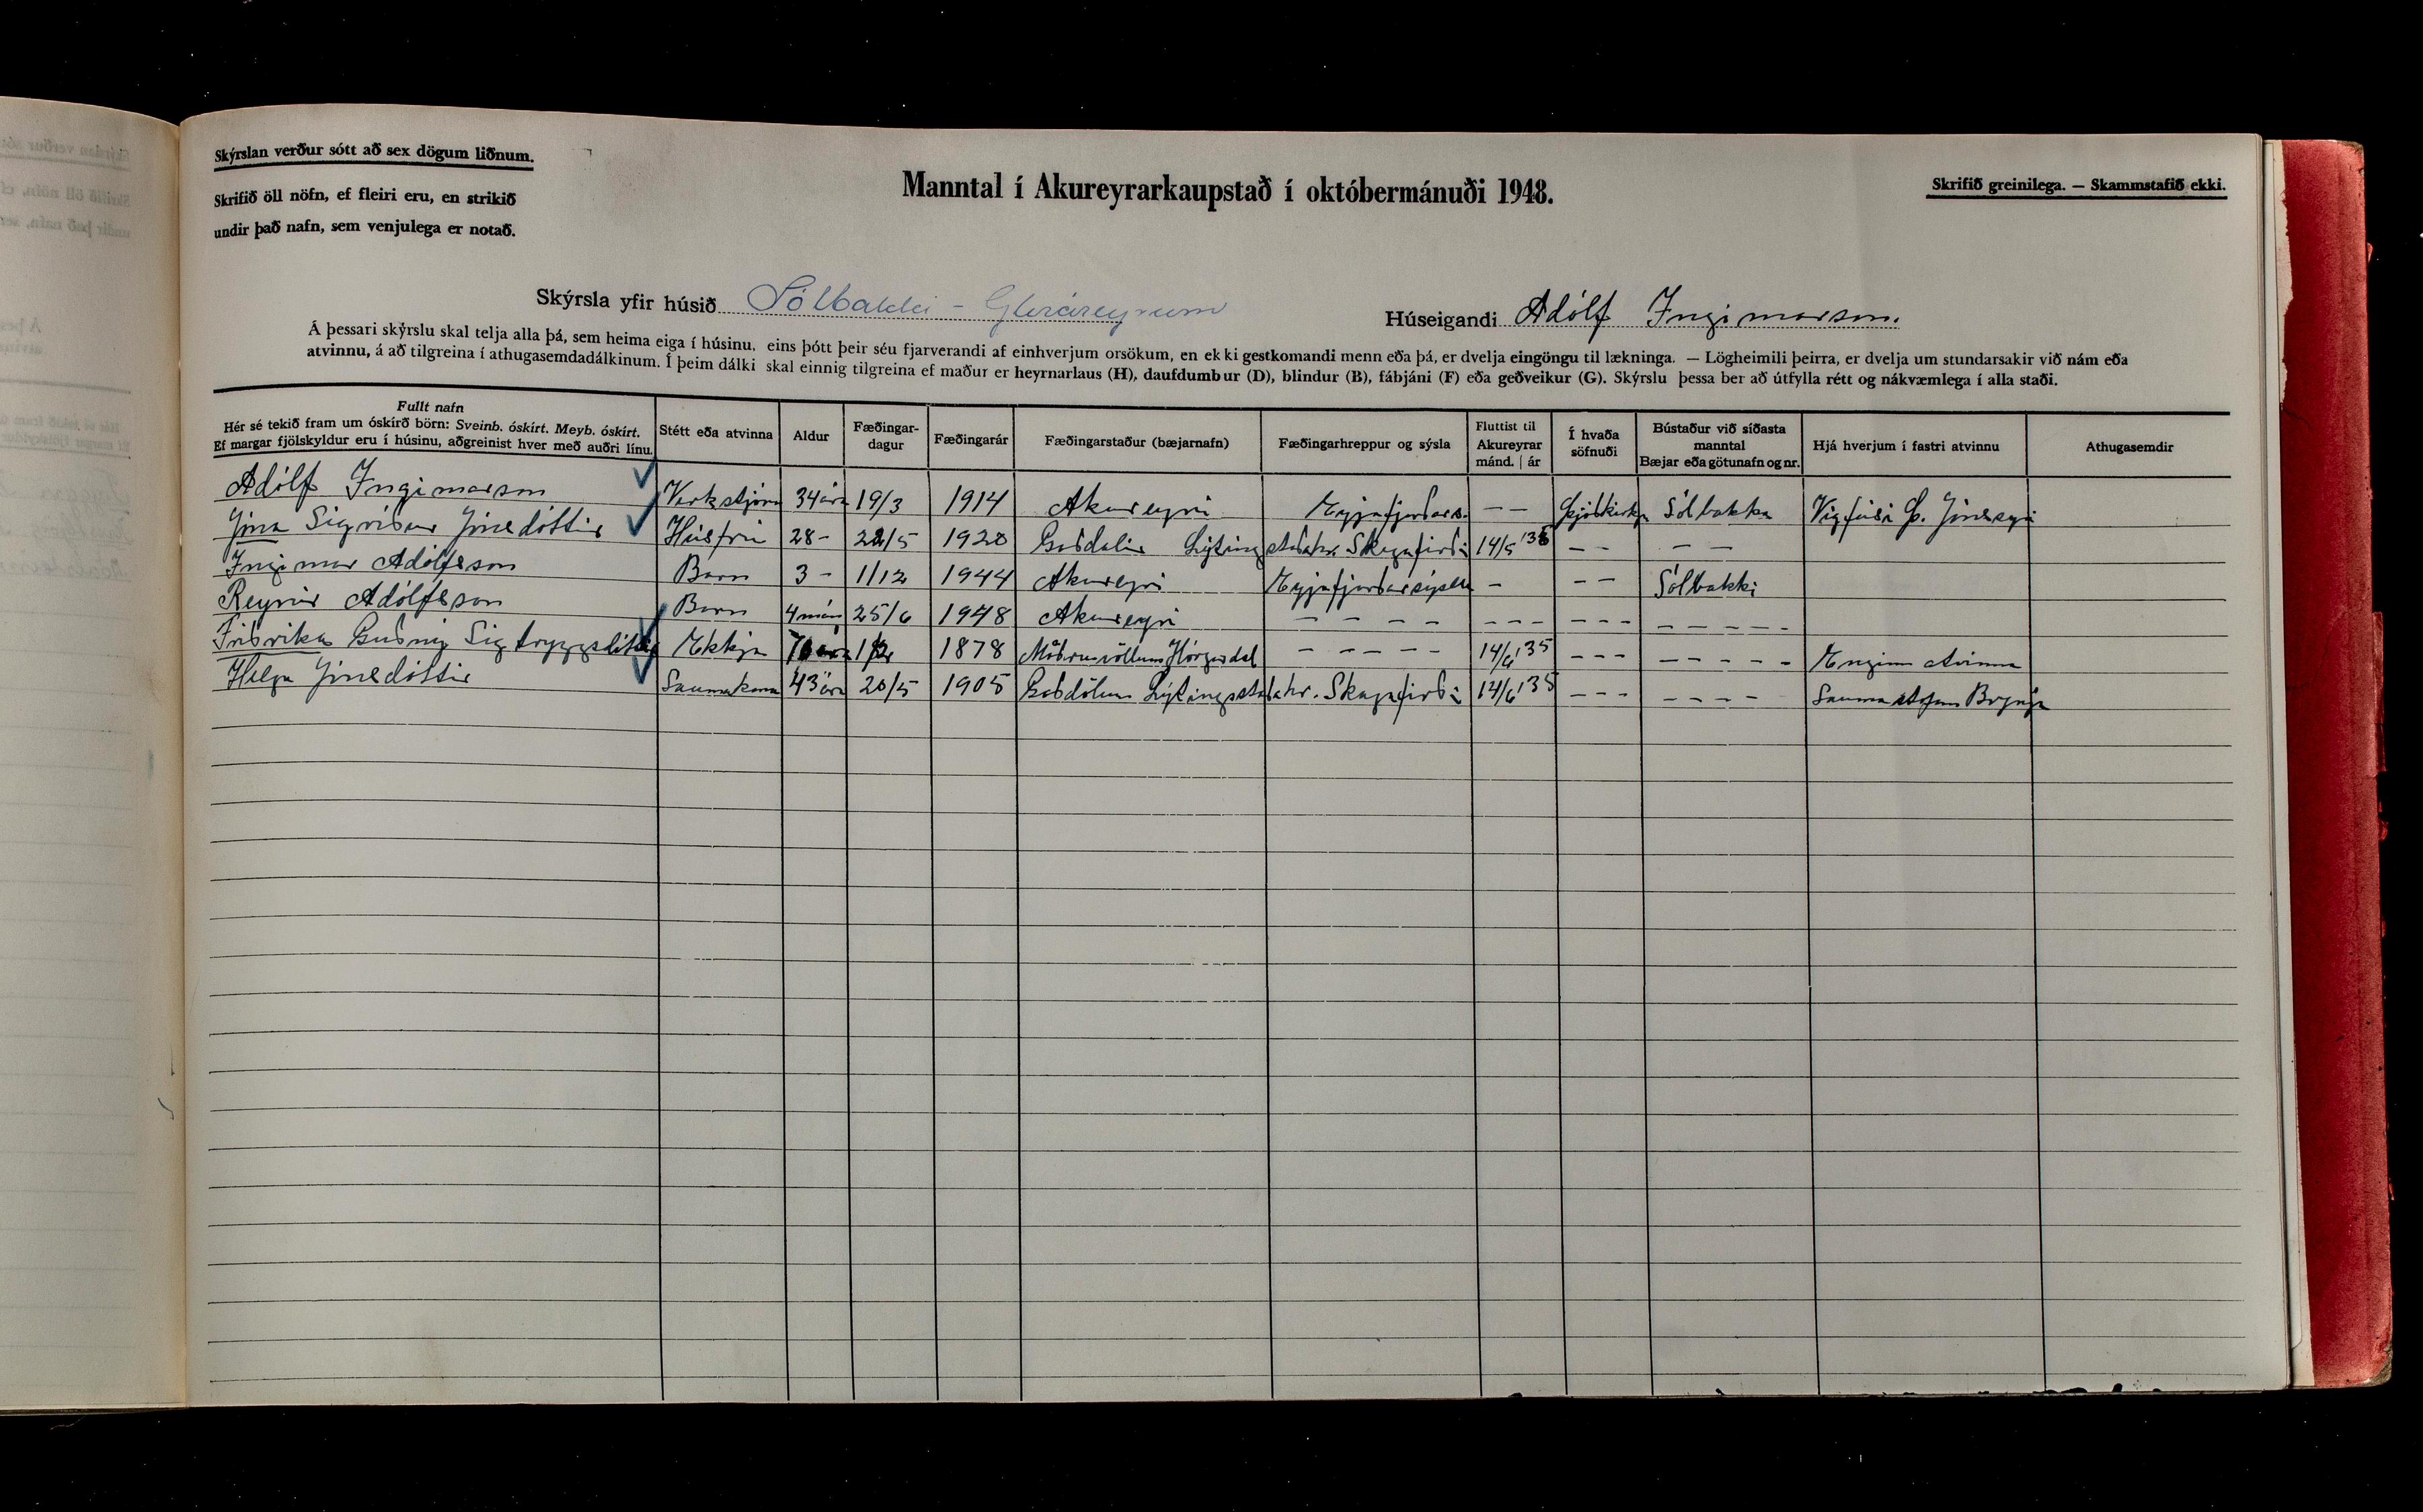 Skýrslan verður sótt að sex dögum liðnum.
Skrifið öll nöfn, ef fleiri eru, en strikið
undir það nafn, sem venjulega er notað.
Manntal í Akureyrarkaupstað í októbermánuði 1948.
Skrifið greinilega. — Skammstafið ekki.
Skýrsla yfir húsið Sólbakki - Gleráreyrum
Húseigandi Adólf Ingimarson.
Á þessari skýrslu skal telja alla þá, sem heima eiga í húsinu, eins þótt þeir séu fjarverandi af einhverjum orsökum, en ekki gestkomandi menn eða þá, er dvelja eingöngu til lækninga. — Lögheimili þeirra, er dvelja um stundarsakir við nám eða
atvinnu, á að tilgreina í athugasemdadálkinum. Í þeim dálki skal einnig tilgreina ef maður er heyrnarlaus (H), daufdumbur (D), blindur (B), fábjáni (F) eða geðveikur (G). Skýrslu þessa ber að útfylla rétt og nákvæmlega í alla staði.
Fullt nafn
Hér sé tekið fram um óskírð börn: Sveinb. óskírt. Meyb. óskírt.
Ef margar fjölskyldur eru í húsinu, aðgreinist hver með auðri línu.
Stétt eða atvinna
Aldur
Fæðingar-
dagur
Fæðingarár
Fæðingarstaður (bæjarnafn)
Fæðingarhreppur og sýsla
Fluttist til
Akureyrar
mánd. | ár
Í hvaða
söfnuði
Bústaður við síðasta
manntal
Bæjar eða götunafn og nr.
Hjá hverjum í fastri atvinnu
Athugasemdir
Adólf Ingimarson Verkstjóri 34 ára 19/3 1914 Akureyri Eyjafjarðars. - - Þjóðkirkju Sólbakka Vigfúsi Þ. Jónssyni
Jína Sigríður Jónsdóttir Húsfrú 28 - 22/5 1920 Goðdalir Lýtingstaðahr. Skagafirði 14/5 '35 - - - -
Ingimar Adólfsson Barn 3 - 1/12 1944 Akureyri Eyjafjarðarsýslu - - - Sólbakki
Reynir Adólfsson Barn 4 mán 25/6 1948 Akureyri - - - - - - - - - - - - - - -
Friðrika Guðný Sigtryggsdóttir Ekkja 70 ára 1878 Möðruvöllum Hörgárdal - - - - - 14/6 '35 - - - - - - - - Engin atvinna
Helga Jónsdóttir Saumakona 43 ára 20/5 1905 Goðdölum Lýtingsstaðahr. Skagafirði 14/6 '35 - - - - - - - Saumastofan Brynja